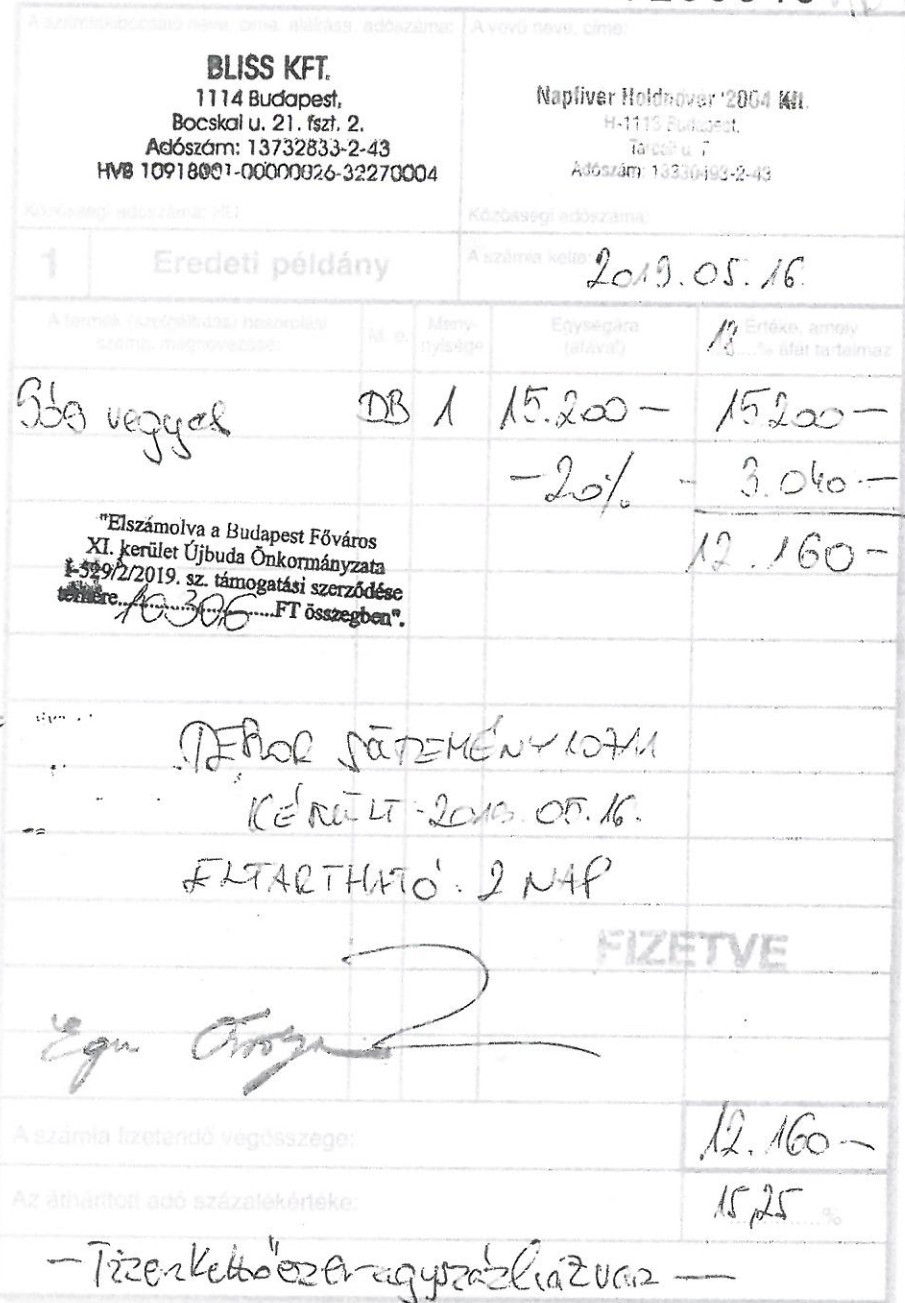 A számlakibocsátó neve, címe, aláírása, adószáma:
BLISS KFT.
1114 Budapest,
Bocskai u. 21. fszt. 2.
Adószám: 13732833-2-43
HVB 10918001-00000026-32270004
Közösségi adószáma: HU
A vevő neve, címe:
Napfivér Holdnővér '2004 Kft.
H-1113 Budapest,
Tarcali u. 7
Adószám: 13330493-2-43
Közösségi adószáma:
1 Eredeti példány
A számla kelte: 2019.05.16.
A termék (szolgáltatás) besorolási száma, megnevezése: M. e. Menynyisége Egységára (áfával) Értéke, amely ....% áfát tartalmaz
vegyes DB 1 15.200- 15.200-
-20% - 3.040-
12.160-
"Elszámolva a Budapest Főváros
XI. kerület Újbuda Önkormányzata
I-529/2/2019. sz. támogatási szerződése
terhére...10306...FT összegben".
SÜTEMÉNY 10711
KÉSZÜLT-2019.05.16.
ELTARTHATÓ: 2 NAP
FIZETVE
A számla fizetendő végösszege: 12.160-
Az áthárított adó százalékértéke: 15,25 %
- Tizenkettőezer-egyszázhatvan -